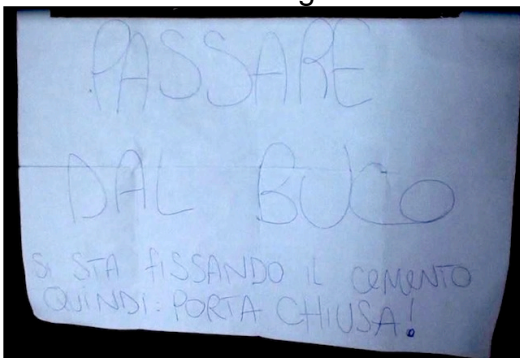 PASSARE
DAL BUCO
SI STA FISSANDO IL CEMENTO
QUINDI: PORTA CHIUSA!